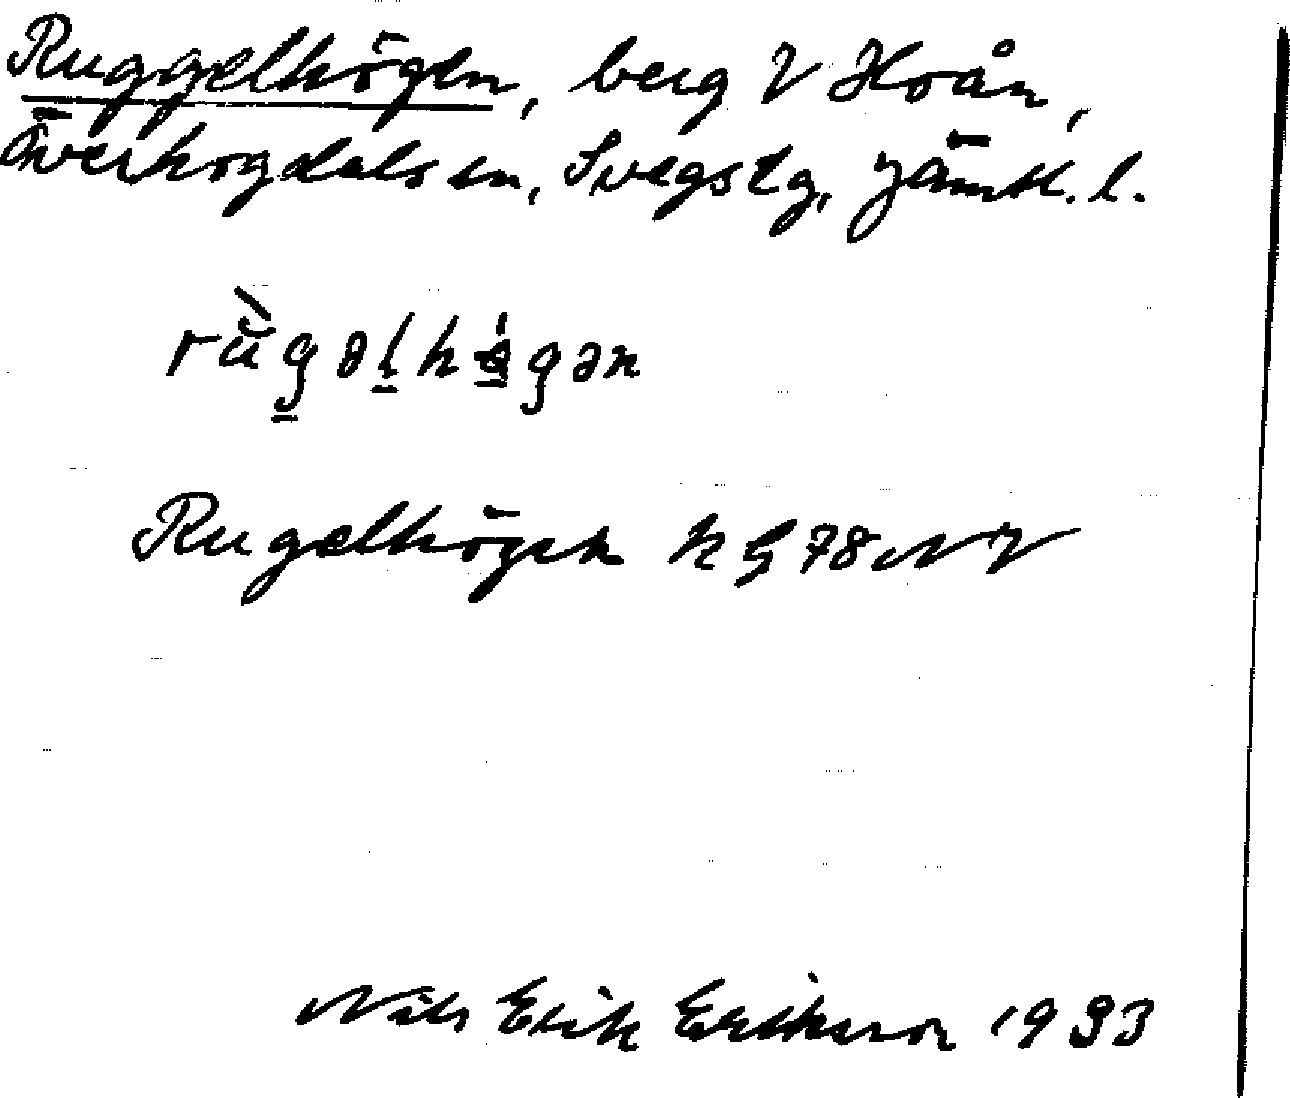 Ruggelhögen, berg V Hoån,
Överhogdals sn, Svegs tg, Jämtl. l.
Rugelhögen kg 78 NV
Nils Erik Eriksson 1993